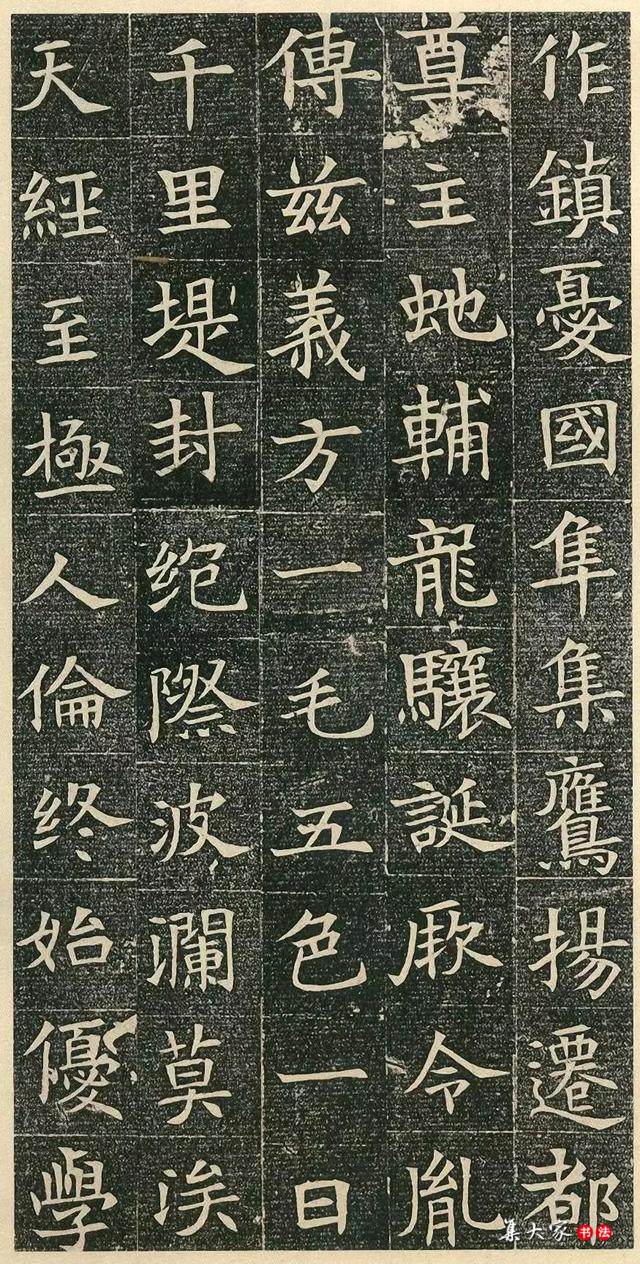 作鎮憂國隼集鷹揚遷都
尊主虵輔龍驤誕厥令胤
傳茲義方一毛五色一日
千里堤封絶際波瀾莫涘
天經至極人倫终始優學
集大家书法